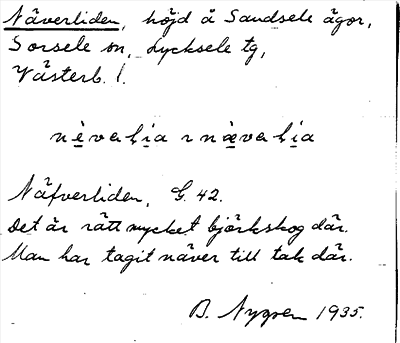 Näverliden, höjd å Sandsele ägor,
Sorsele sn, Lycksele tg,
Västerb. l.
nèvalia nævalia
Näfverliden, G. 42.
Det är rätt mycket björkskog där.
Man har tagit näver till tak där.
B. Nygren 1935.